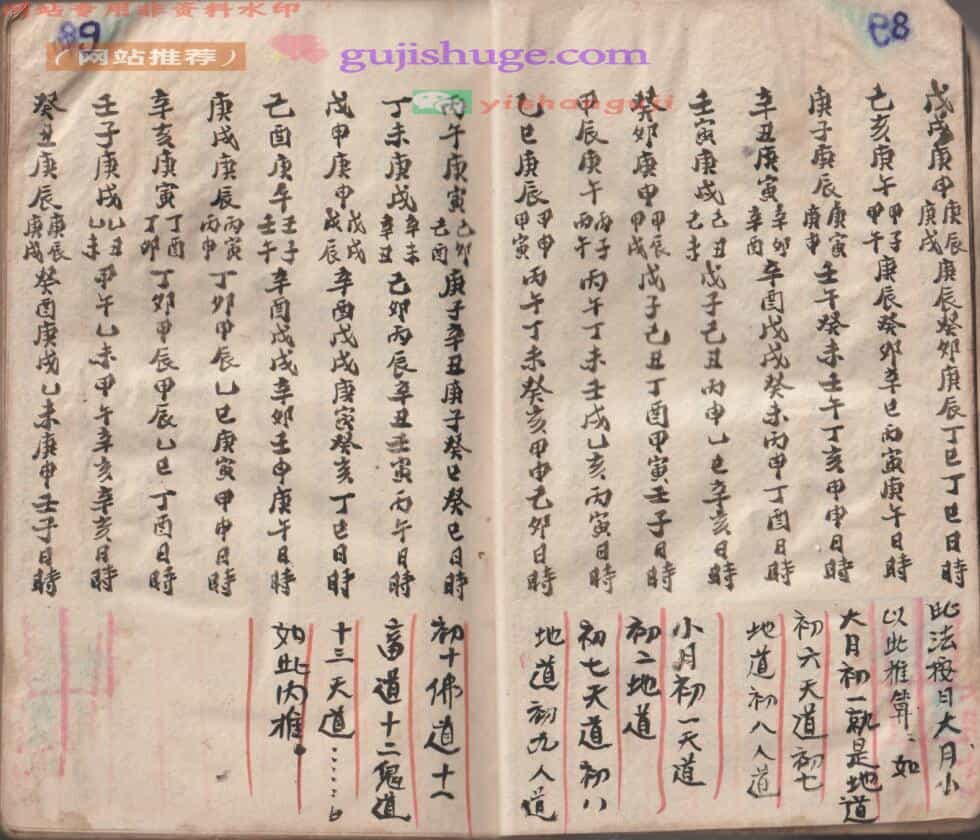 网站专用非资料水印
89
88
（网站推荐）
gujishuge.com
yishanguji
戊戌庚甲庚辰庚戌庚辰癸卯庚辰丁巳丁巳日時
乙亥庚午甲子甲午庚辰癸卯辛巳丙寅庚午日時
庚子庚辰庚寅庚申壬午癸未壬午丁亥甲申日時
辛丑庚寅辛卯辛酉辛酉戊戌癸未丙申丁酉日時
壬寅庚戌己丑己未戊子己丑丙申乙巳辛亥日時
癸卯庚甲甲辰甲戌戊子己丑丁酉甲寅壬子日時
甲辰庚午丙子丙午丙午丁未壬戌乙亥丙寅日時
乙巳庚辰甲申甲寅丙午丁未癸亥甲申乙卯日時
此法按日大月小
以此推算、如
大月初一就是地道
初六天道初七
地道初八人道
小月初一天道
初二地道
初七天道初八
地道初九人道
丙午庚寅己卯己酉庚子辛丑庚子癸巳癸巳日時
丁未庚戌辛未辛丑己卯丙辰辛丑壬寅丙午日時
戊甲庚甲戊戌戊辰辛酉戊戌庚寅癸亥丁巳日時
己酉庚午壬子壬午辛酉戊戌辛卯壬申庚午日時
庚戌庚辰丙寅丙申丁卯甲辰乙巳庚寅甲申日時
辛亥庚寅丁酉丁卯丁卯甲辰甲辰乙巳丁酉日時
壬子庚戌乙丑乙未甲午乙未甲午辛亥辛亥日時
癸丑庚辰庚辰庚戌癸酉庚戌乙未庚申壬子日時
初十佛道十一
畜道十二鬼道
十三天道……
如此内推。